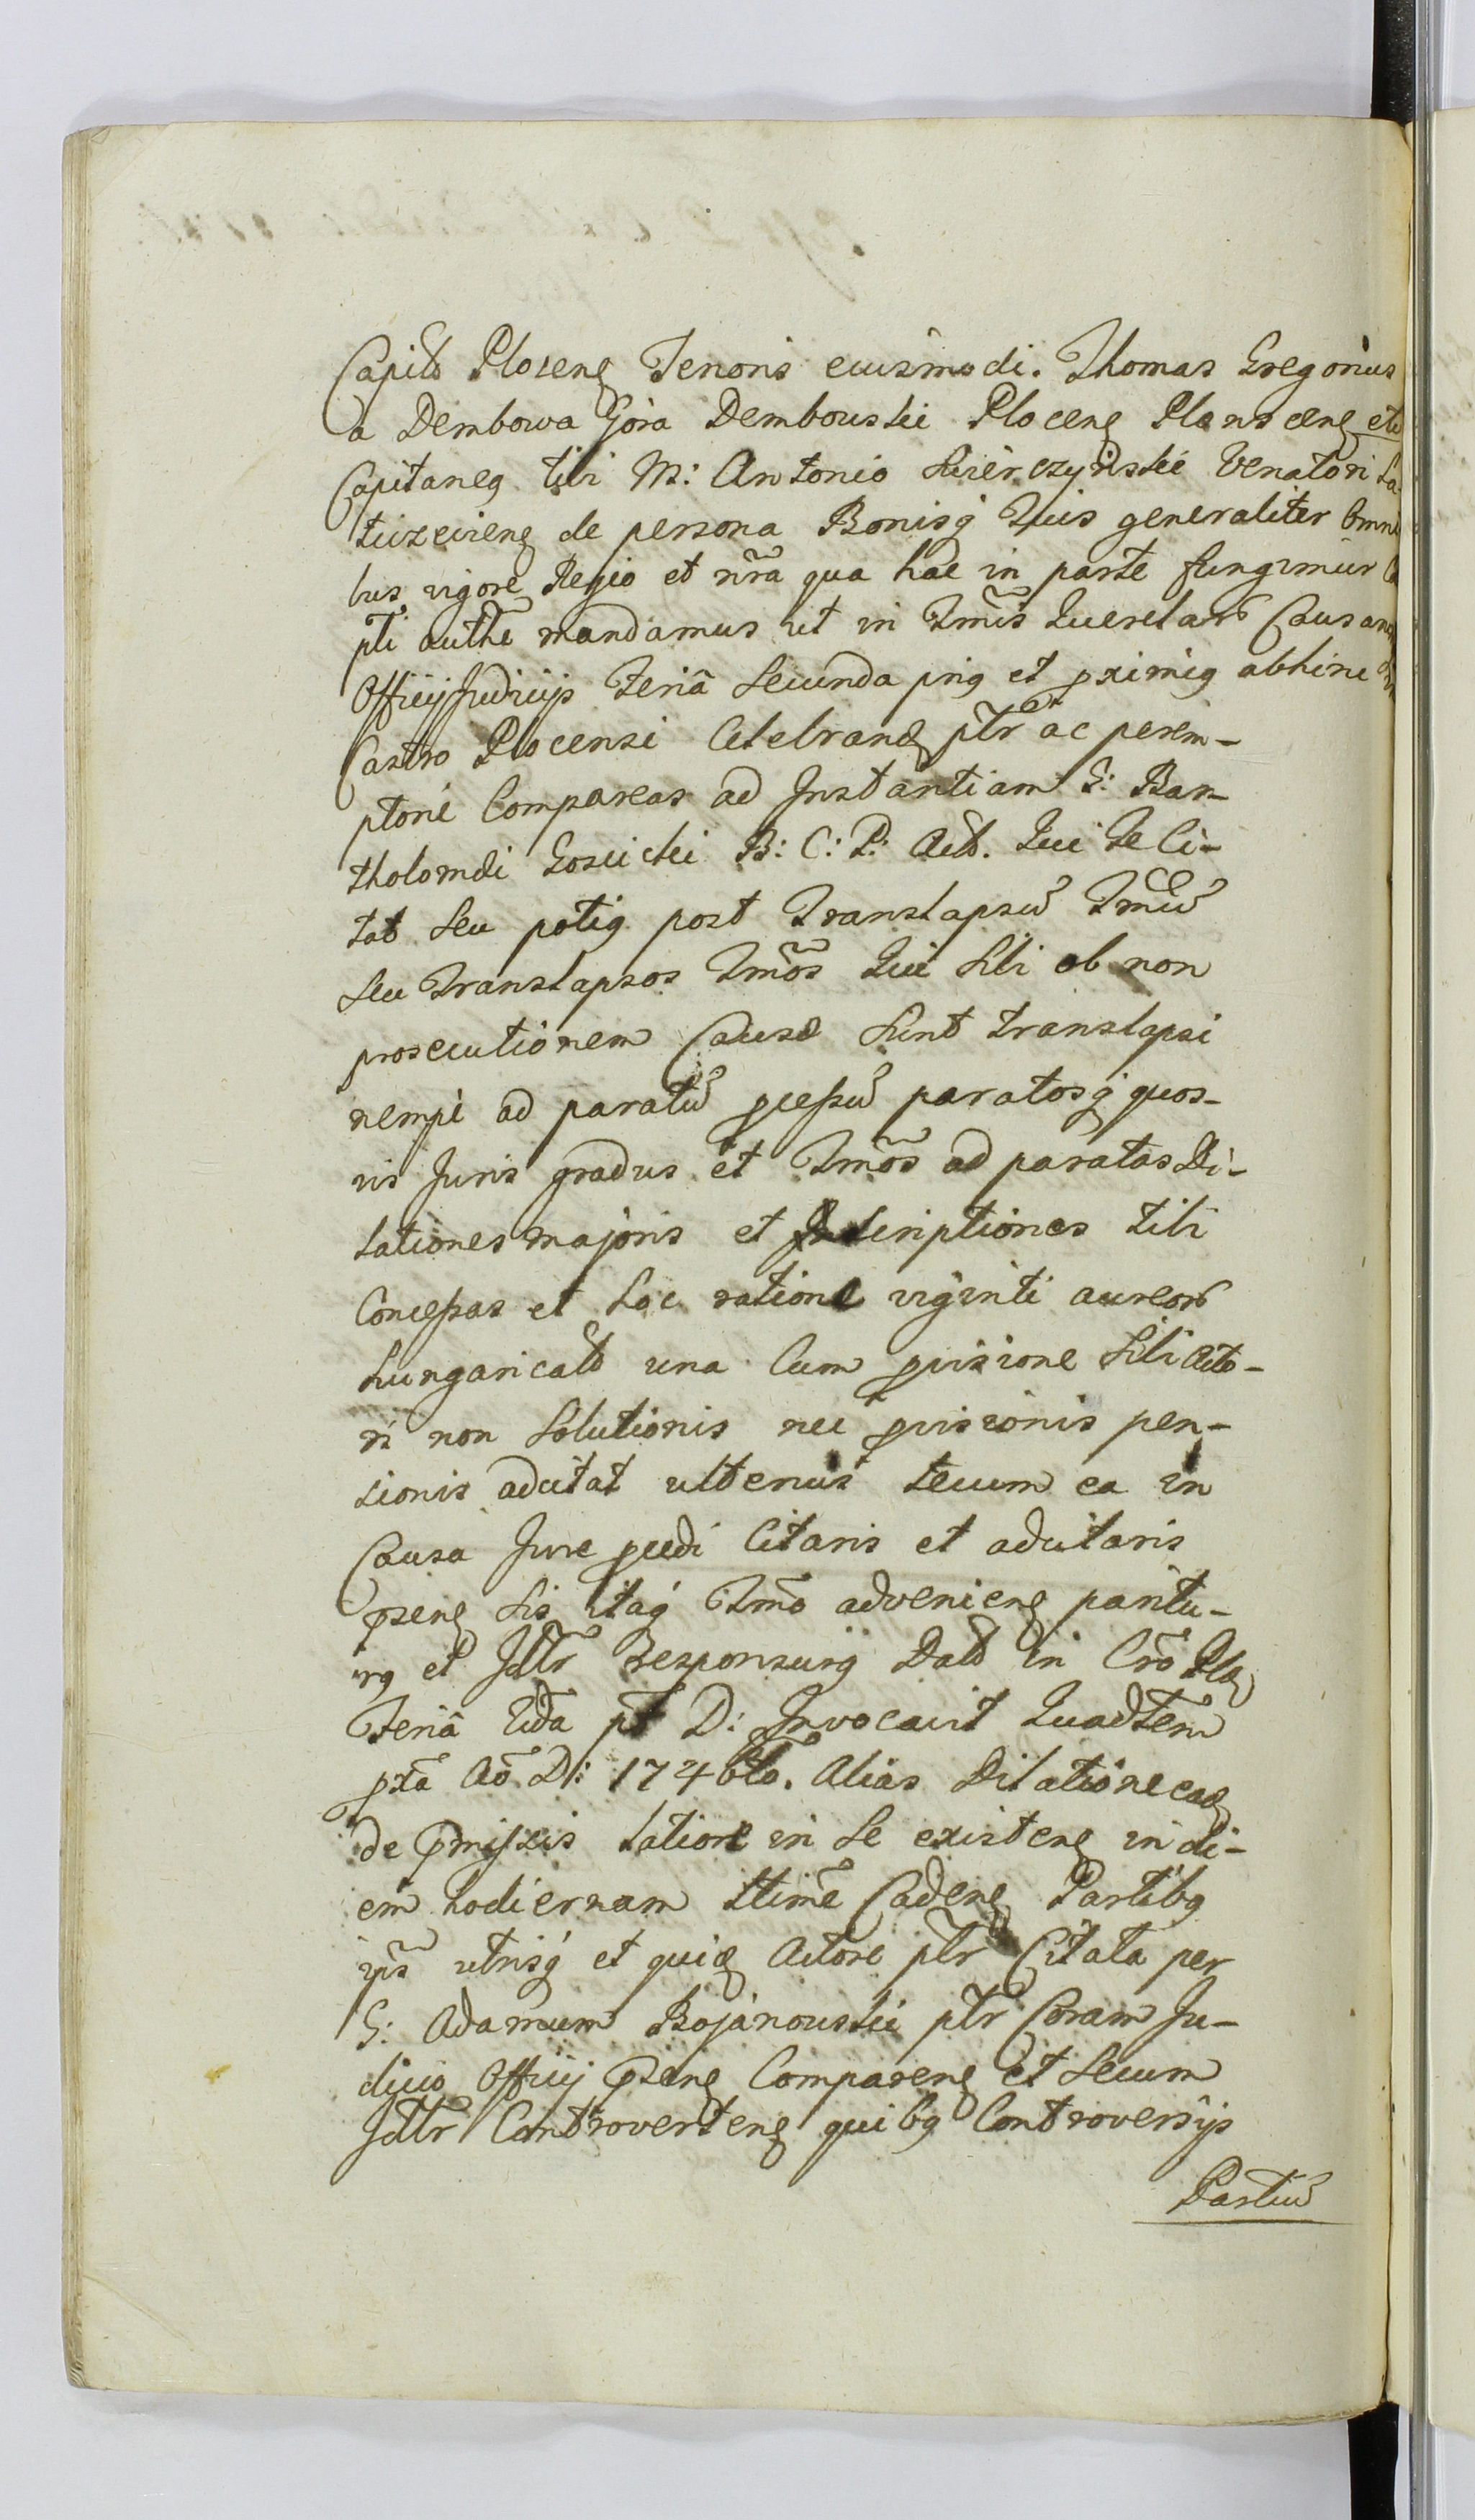 Capitlis Plocens Tenoris eiusmodi. Thomas Gregorius
a Dembowa Góra Dembowskii Plocens Plonscens etc
Capitaneg tibi M: Antonio Venatori
de persona Bonisq tuis generaliter Omni
bus vigore Regio et nr̃a qua hac in parte fungimur
pti authe mandamus ut in Tmis Querelar Causar
Officij Judicijs feria Secunda png et pximig abhinc
Castro Plocensi Celebrand ptr ac perem-
ptorie Compareas ad Instantiam G: Bar-
tholomæi B: C: P: Act. Qui Te Ci-
tat Seu potig post Translapsũ Tmũ
Seu Translapsos Tmõs Qui Sibi ob non
prosecutionem Causæ Sunt translapsi
nempe ad paratũ pcessũ paratosq quos-
vis Juris gradus et Tmõs ad paratas Di-
lationes majoris et Inscriptiones tibi
Concessas et hoc ratione viginti aureor
hungaricalt una Cum pvisione Sibi Acto-
ri non Solutionis nec pvisionis pen-
sionis adcitat ulterius tecum ea in
Causa Jure pcedi Citaris et adcitaris
pzens Sis itaq Tmõ advenienꝫ paritu-
rg et Jdtr̃ Responsurg Dat in Crõ Plo
Feria 2da pt D: Invocavit Quadtem
pxã Aõ D: 1746to. Alias Dilatione ead
de pmissis latione in Se existens in di-
em hodiernam ltime Cadens Partibg
ips utrisq et quid Actore ptr Citata per
G: Adamum Bojanowskii ptr Coram Ju-
dicio Officij pzens Comparens et Secum
Jdtr Controvertens quibg Controversijs
Partiũ